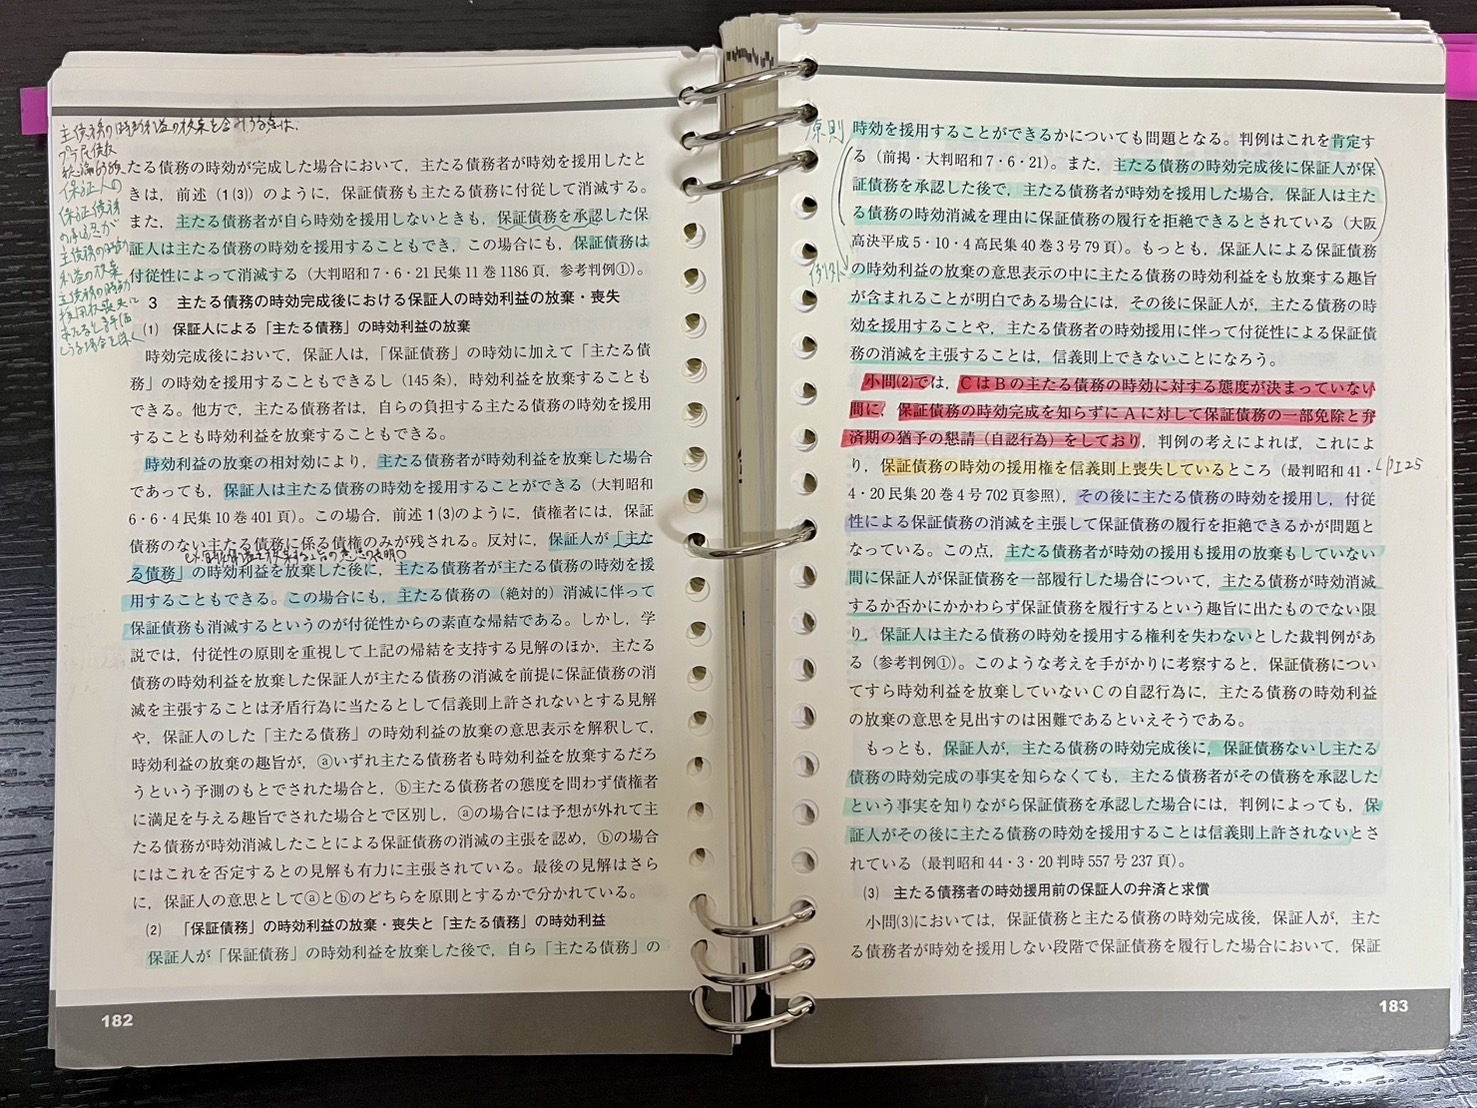 主債務の時効利益の放棄も含みうる点は、
たる債務の時効が完成した場合において，主たる債務者が時効を援用したと
きは，前述（1⑶）のように，保証債務も主たる債務に付従して消滅する。
また，主たる債務者が自ら時効を援用しないときも，保証債務を承認した保
証人は主たる債務の時効を援用することもでき，この場合にも，保証債務は
付従性によって消滅する（大判昭和7・6・21民集11巻1186頁，参考判例①）。
保証人の
保証債務
主債務の時効
利益の放棄
3　主たる債務の時効完成後における保証人の時効利益の放棄・喪失
⑴　保証人による「主たる債務」の時効利益の放棄
時効完成後において，保証人は，「保証債務」の時効に加えて「主たる債
務」の時効を援用することもできるし（145条），時効利益を放棄することも
できる。他方で，主たる債務者は，自らの負担する主たる債務の時効を援用
することも時効利益を放棄することもできる。
時効利益の放棄の相対効により，主たる債務者が時効利益を放棄した場合
であっても，保証人は主たる債務の時効を援用することができる（大判昭和
6・6・4民集10巻401頁）。この場合，前述1⑶のように，債権者には，保証
債務のない主たる債務に係る債権のみが残される。反対に，保証人が「主た
る債務」の時効利益を放棄した後に，主たる債務者が主たる債務の時効を援
用することもできる。この場合にも，主たる債務の（絶対的）消滅に伴って
保証債務も消滅するというのが付従性からの素直な帰結である。しかし，学
説では，付従性の原則を重視して上記の帰結を支持する見解のほか，主たる
債務の時効利益を放棄した保証人が主たる債務の消滅を前提に保証債務の消
滅を主張することは矛盾行為に当たるとして信義則上許されないとする見解
や，保証人のした「主たる債務」の時効利益の放棄の意思表示を解釈して，
時効利益の放棄の趣旨が，ⓐいずれ主たる債務者も時効利益を放棄するだろ
うという予測のもとでされた場合と，ⓑ主たる債務者の態度を問わず債権者
に満足を与える趣旨でされた場合とで区別し，ⓐの場合には予想が外れて主
たる債務が時効消滅したことによる保証債務の消滅の主張を認め，ⓑの場合
にはこれを否定するとの見解も有力に主張されている。最後の見解はさら
に，保証人の意思としてⓐとⓑのどちらを原則とするかで分かれている。
⑵　「保証債務」の時効利益の放棄・喪失と「主たる債務」の時効利益
保証人が「保証債務」の時効利益を放棄した後で，自ら「主たる債務」の
182
原則
時効を援用することができるかについても問題となる。判例はこれを肯定す
る（前掲・大判昭和7・6・21）。また，主たる債務の時効完成後に保証人が保
証債務を承認した後で，主たる債務者が時効を援用した場合，保証人は主た
る債務の時効消滅を理由に保証債務の履行を拒絶できるとされている（大阪
高決平成5・10・4高民集40巻3号79頁）。もっとも，保証人による保証債務
例外
の時効利益の放棄の意思表示の中に主たる債務の時効利益をも放棄する趣旨
が含まれることが明白である場合には，その後に保証人が，主たる債務の時
効を援用することや，主たる債務者の時効援用に伴って付従性による保証債
務の消滅を主張することは，信義則上できないことになろう。
小問⑵では，CはBの主たる債務の時効に対する態度が決まっていない
間に，保証債務の時効完成を知らずにAに対して保証債務の一部免除と弁
済期の猶予の懇請（自認行為）をしており，判例の考えによれば，これによ
り，保証債務の時効の援用権を信義則上喪失しているところ（最判昭和41・
4・20民集20巻4号702頁参照），その後に主たる債務の時効を援用し，付従
性による保証債務の消滅を主張して保証債務の履行を拒絶できるかが問題と
なっている。この点，主たる債務者が時効の援用も援用の放棄もしていない
間に保証人が保証債務を一部履行した場合について，主たる債務が時効消滅
するか否かにかかわらず保証債務を履行するという趣旨に出たものでない限
り，保証人は主たる債務の時効を援用する権利を失わないとした裁判例があ
る（参考判例①）。このような考えを手がかりに考察すると，保証債務につい
てすら時効利益を放棄していないCの自認行為に，主たる債務の時効利益
の放棄の意思を見出すのは困難であるといえそうである。
もっとも，保証人が，主たる債務の時効完成後に，保証債務ないし主たる
債務の時効完成の事実を知らなくても，主たる債務者がその債務を承認した
という事実を知りながら保証債務を承認した場合には，判例によっても，保
証人がその後に主たる債務の時効を援用することは信義則上許されないとさ
れている（最判昭和44・3・20判時557号237頁）。
⑶　主たる債務者の時効援用前の保証人の弁済と求償
小問⑶においては，保証債務と主たる債務の時効完成後，保証人が，主た
る債務者が時効を援用しない段階で保証債務を履行した場合において，保証
183